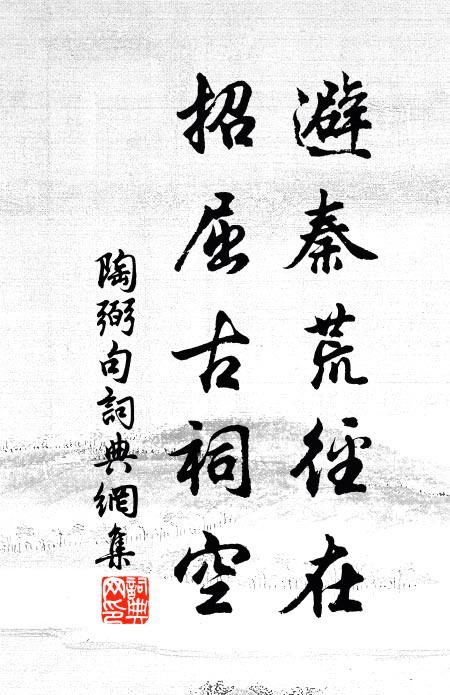 避秦荒徑在
招屈古祠空
陶弼句詞典網集
詞典网印